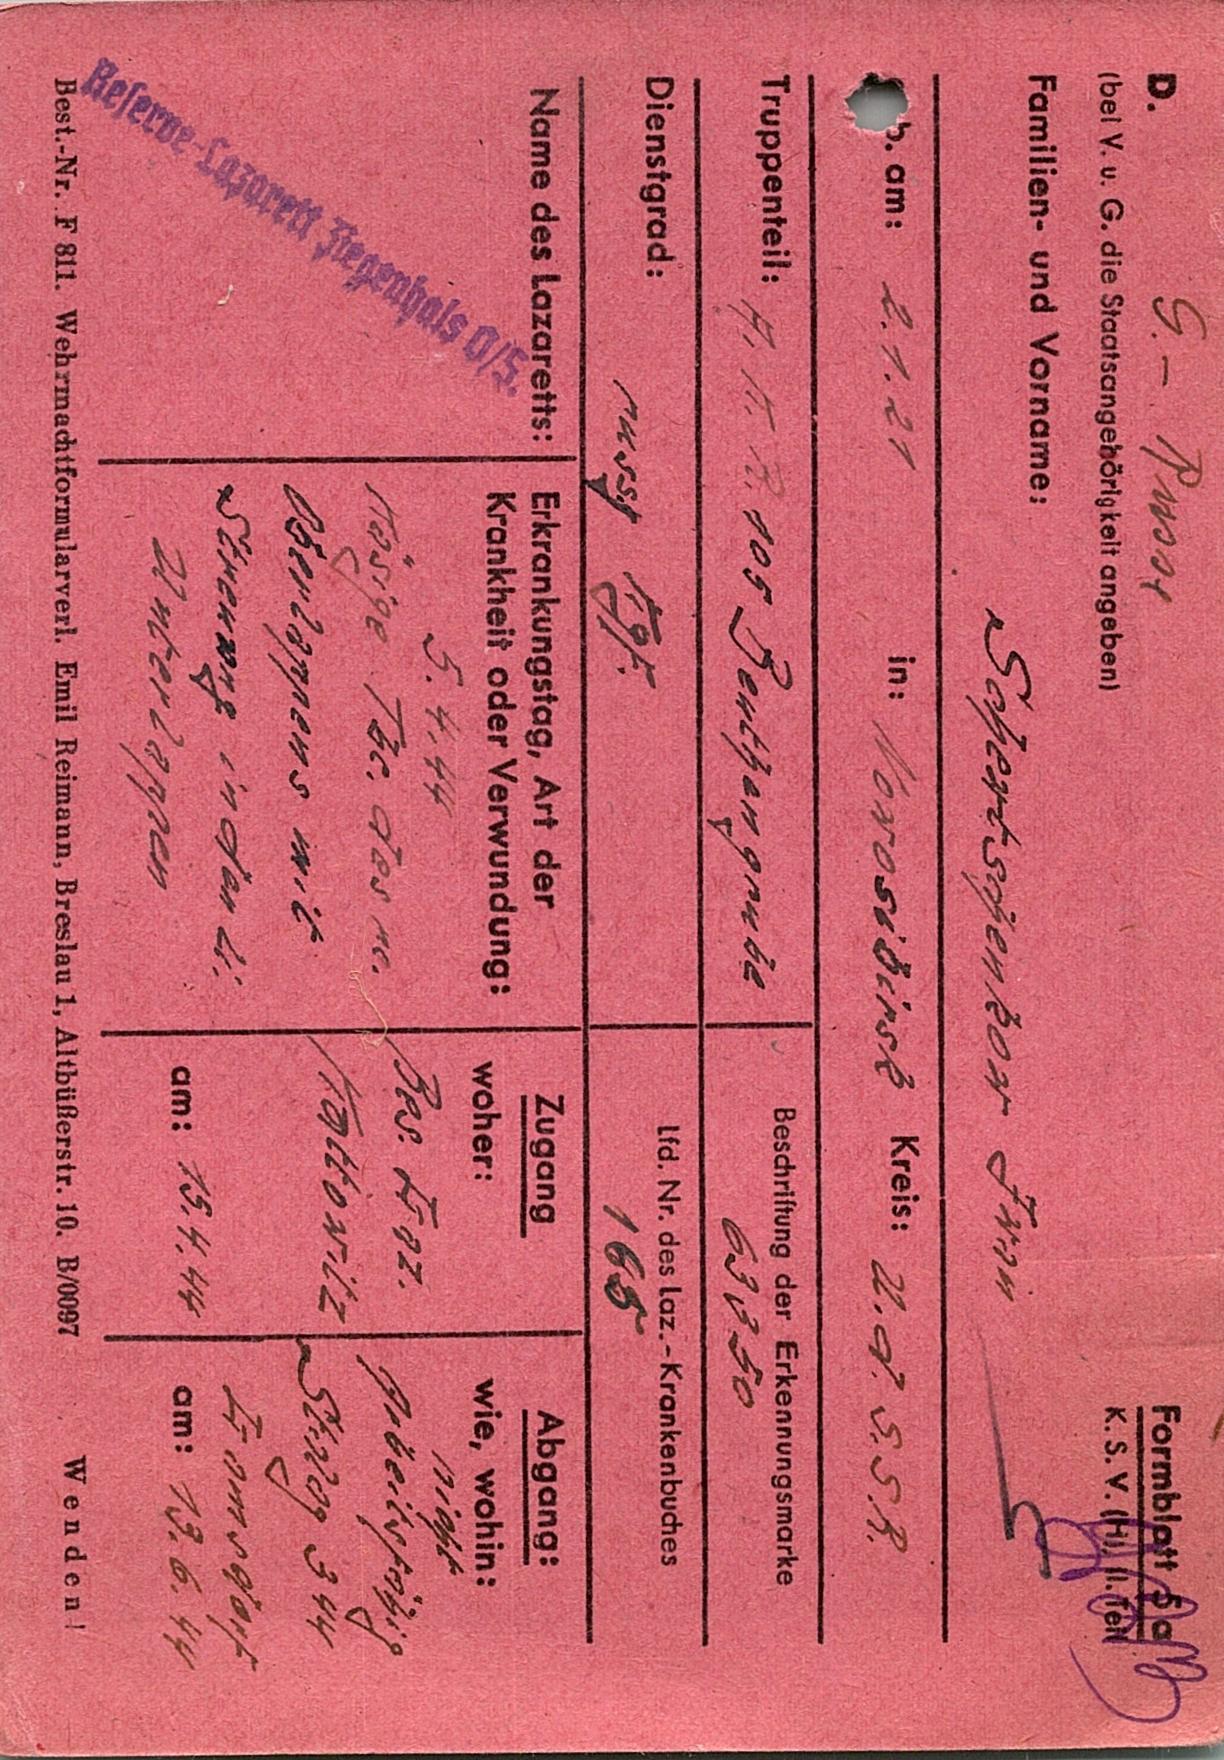 D. G. – Russe
Formblatt 5a
(bei V. u. G. die Staatsangehörigkeit angeben)
K. S. V. (H), II. Teil
Familien- und Vorname:
Schertschenkow Iwan
b. am: 2.1.21 in: Novosibirsk Kreis: U.d.S.S.R.
Truppenteil: A. K. R. 105 Beuthengrube
Beschriftung der Erkennungsmarke
63350
Dienstgrad: russ Kgf.
Lfd. Nr. des Laz.-Krankenbuches
165
Name des Lazaretts:
Reserve-Lazarett Ziegenhals O/S.
Erkrankungstag, Art der
Krankheit oder Verwundung:
5.4.44
Käsige Tbc. des re.
Oberlappens mit
Streuung in den li.
Unterlappen
Zugang
woher:
Res. Laz.
Kattowitz
am: 15.4.44
Abgang:
wie, wohin:
nicht
Arbeitsfähig
Stalag 344
Lamsdorf
am: 13.6.44
Best.-Nr. F 811. Wehrmachtformularverl. Emil Reimann, Breslau 1, Altbüßerstr. 10. B/0097 Wenden!